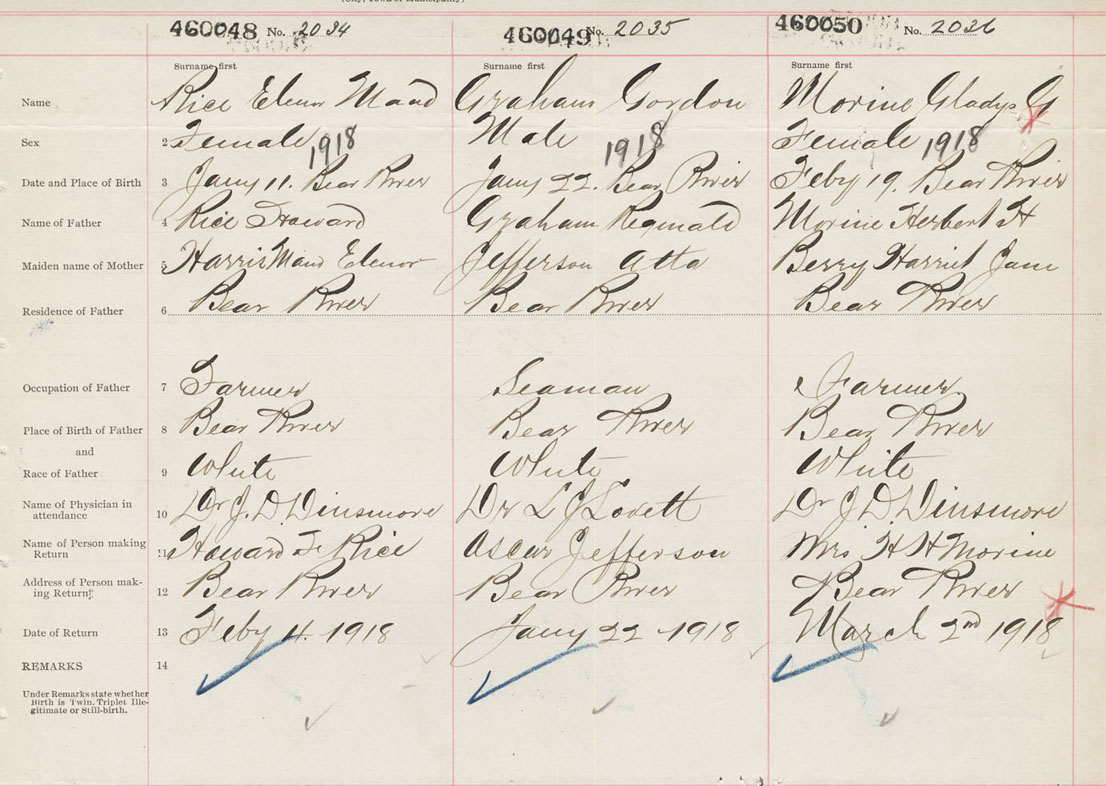 460048 No. 2034 460049 No. 2035 460050 No. 2036
Surname first Surname first Surname first
Name Rice Elenor Maud Graham Gordon Morine Gladys G
Sex 2 Female Male Female
1918 1918 1918
Date and Place of Birth 3 Jany 11. Bear River Jany 22. Bear River Feby 19. Bear River
Name of Father 4 Rice Howard Graham Reginald Morine Herbert H
Maiden name of Mother 5 Harris Maud Elenor Jefferson Atta Berry Harriet Jane
Residence of Father 6 Bear River Bear River Bear River
Occupation of Father 7 Farmer Seaman Farmer
Place of Birth of Father 8 Bear River Bear River Bear River
and
Race of Father 9 White White White
Name of Physician in
attendance 10 Dr J. D. Dinsmore Dr L J Lovett Dr J D Dinsmore
Name of Person making
Return 11 Howard F Rice Ascar Jefferson Mrs H H Morine
Address of Person mak-
ing Return 12 Bear River Bear River Bear River
Date of Return 13 Feby 4 1918 Jany 22 1918 March 2nd 1918
REMARKS 14
Under Remarks state whether
Birth is Twin. Triplet Ille-
gitimate or Still-birth.